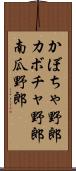 かぼちゃ野郎
カボチャ野郎
南瓜野郎